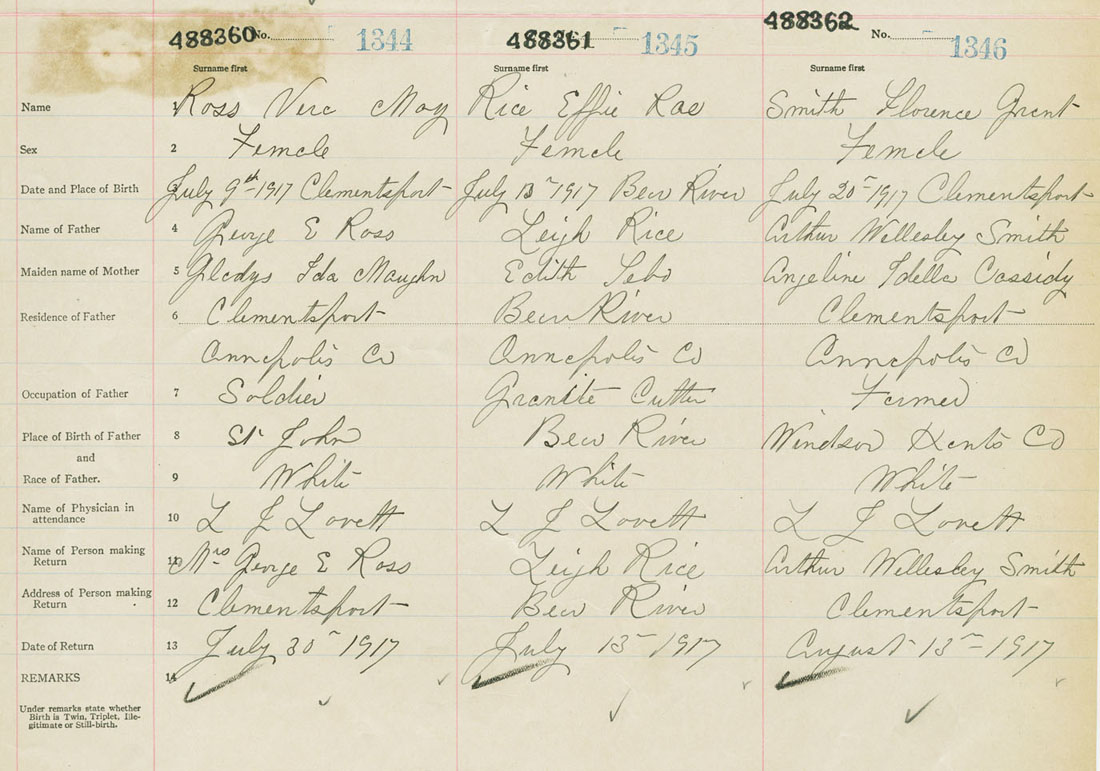 488360 No. 1344 488361 1345 488362 No. 1346
Surname first Surname first Surname first
Name 1 Ross Vera May Rice Effie Rae Smith Florence Grant
Sex 2 Female Female Female
Date and Place of Birth 3 July 9th 1917 Clementsport July 13 1917 Bear River July 20 1917 Clementsport
Name of Father 4 George E Ross Leigh Rice Arthur Wellesley Smith
Maiden name of Mother 5 Gladys Ida Maughn Edith Sebo Angeline Idella Cassidy
Residence of Father 6 Clementsport Bear River Clementsport
Annapolis Co Annapolis Co Annapolis Co
Occupation of Father 7 Soldier Granite Cutter Farmer
Place of Birth of Father 8 St John Bear River Windsor Hants Co
and
Race of Father. 9 White White White
Name of Physician in
attendance 10 L J Lovett L J Lovett L J Lovett
Name of Person making
Return 11 Mrs George E Ross Leigh Rice Arthur Wellesley Smith
Address of Person making
Return 12 Clementsport Bear River Clementsport
Date of Return 13 July 30 1917 July 13 1917 August 13 1917
REMARKS 14
Under remarks state whether
Birth is Twin, Triplet, Ille-
gitimate or Still-birth.